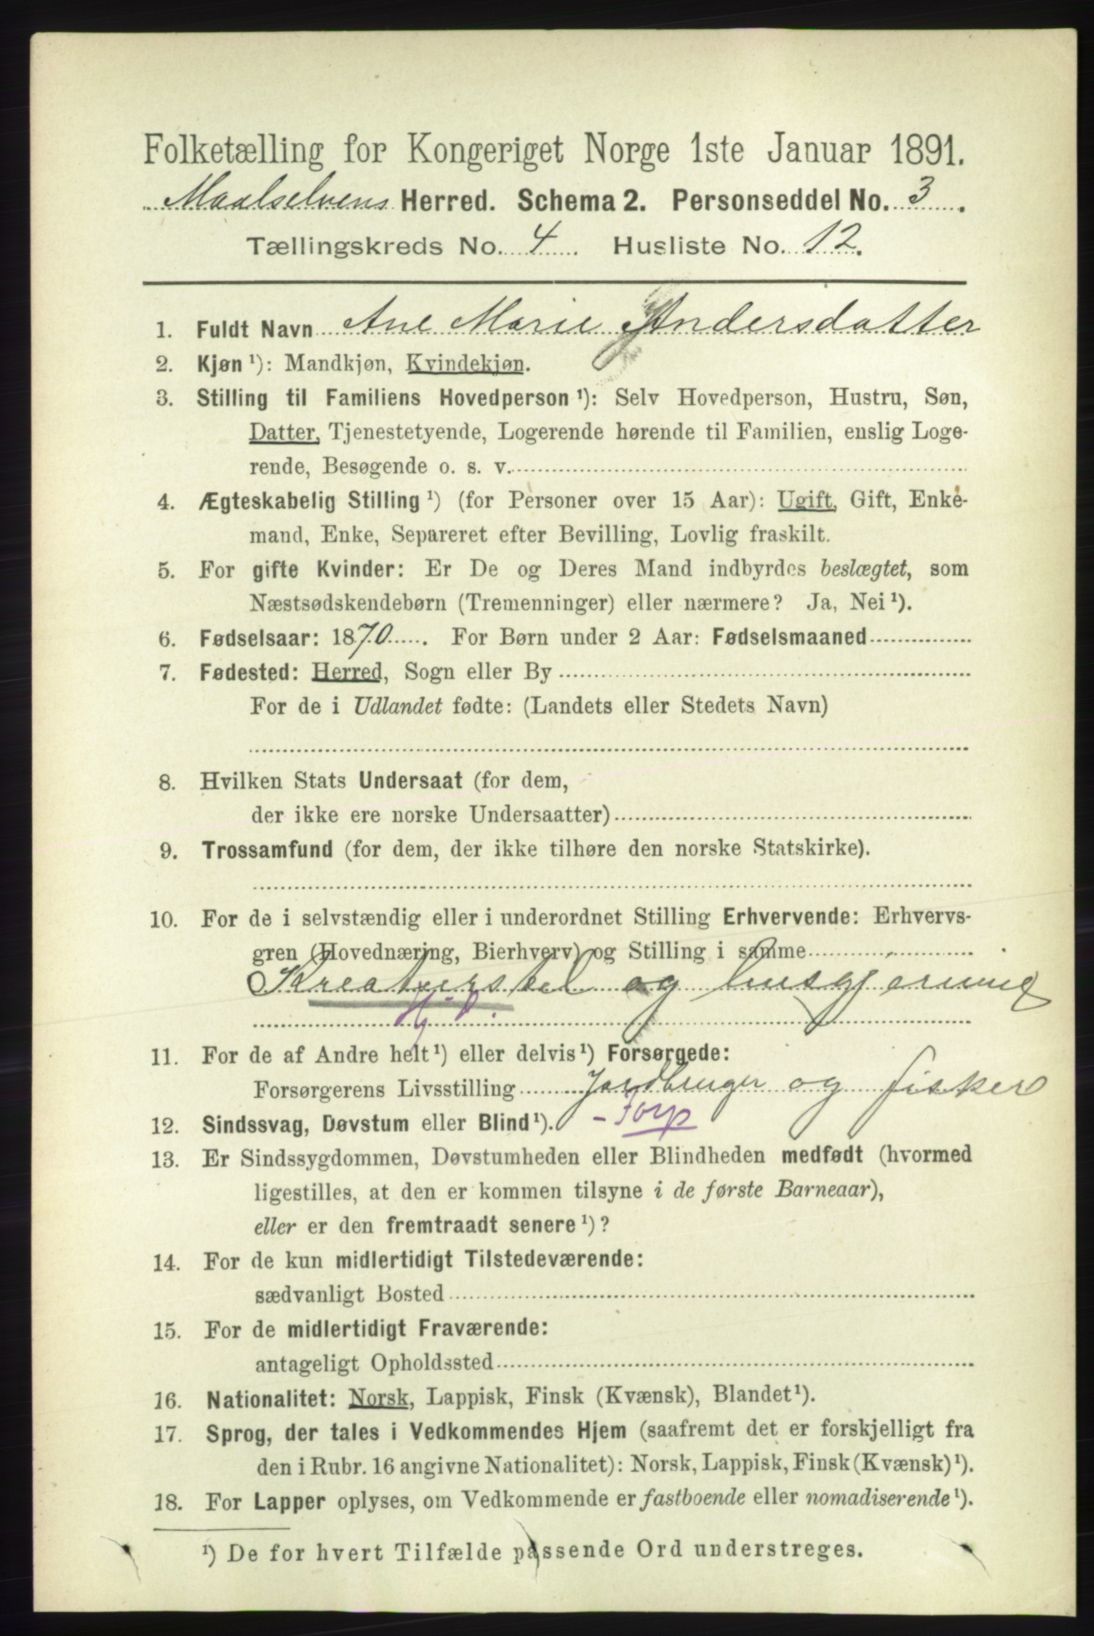 Folketælling for Kongeriget Norge 1ste Januar 1891.
Maalselvens Herred. Schema 2. Personseddel No. 3.
Tællingskreds No. 4. Husliste No. 12.
1. Fuldt Navn Ane Marie Andersdatter
2. Kjøn ¹): Mandkjøn, Kvindekjøn.
3. Stilling til Familiens Hovedperson ¹): Selv Hovedperson, Hustru, Søn,
Datter, Tjenestetyende, Logerende hørende til Familien, enslig Loge-
rende, Besøgende o. s. v.
4. Ægteskabelig Stilling ¹) (for Personer over 15 Aar): Ugift, Gift, Enke-
mand, Enke, Separeret efter Bevilling, Lovlig fraskilt.
5. For gifte Kvinder: Er De og Deres Mand indbyrdes beslægtet, som
Næstsødskendebørn (Tremenninger) eller nærmere? Ja, Nei ¹).
6. Fødselsaar: 1870. For Børn under 2 Aar: Fødselsmaaned
7. Fødested: Herred, Sogn eller By
For de i Udlandet fødte: (Landets eller Stedets Navn)
8. Hvilken Stats Undersaat (for dem,
der ikke ere norske Undersaatter)
9. Trossamfund (for dem, der ikke tilhøre den norske Statskirke).
10. For de i selvstændig eller i underordnet Stilling Erhvervende: Erhvervs-
gren (Hovednæring, Bierhverv) og Stilling i samme
Kreaturstel og husgjerning
11. For de af Andre helt ¹) eller delvis ¹) Forsørgede:
Forsørgerens Livsstilling Jordbruger og fisker
12. Sindssvag, Døvstum eller Blind ¹).
13. Er Sindssygdommen, Døvstumheden eller Blindheden medfødt (hvormed
ligestilles, at den er kommen tilsyne i de første Barneaar),
eller er den fremtraadt senere ¹)?
14. For de kun midlertidigt Tilstedeværende:
sædvanligt Bosted
15. For de midlertidigt Fraværende:
antageligt Opholdssted
16. Nationalitet: Norsk, Lappisk, Finsk (Kvænsk), Blandet ¹).
17. Sprog, der tales i Vedkommendes Hjem (saafremt det er forskjelligt fra
den i Rubr. 16 angivne Nationalitet): Norsk, Lappisk, Finsk (Kvænsk) ¹).
18. For Lapper oplyses, om Vedkommende er fastboende eller nomadiserende ¹).
¹) De for hvert Tilfælde passende Ord understreges.